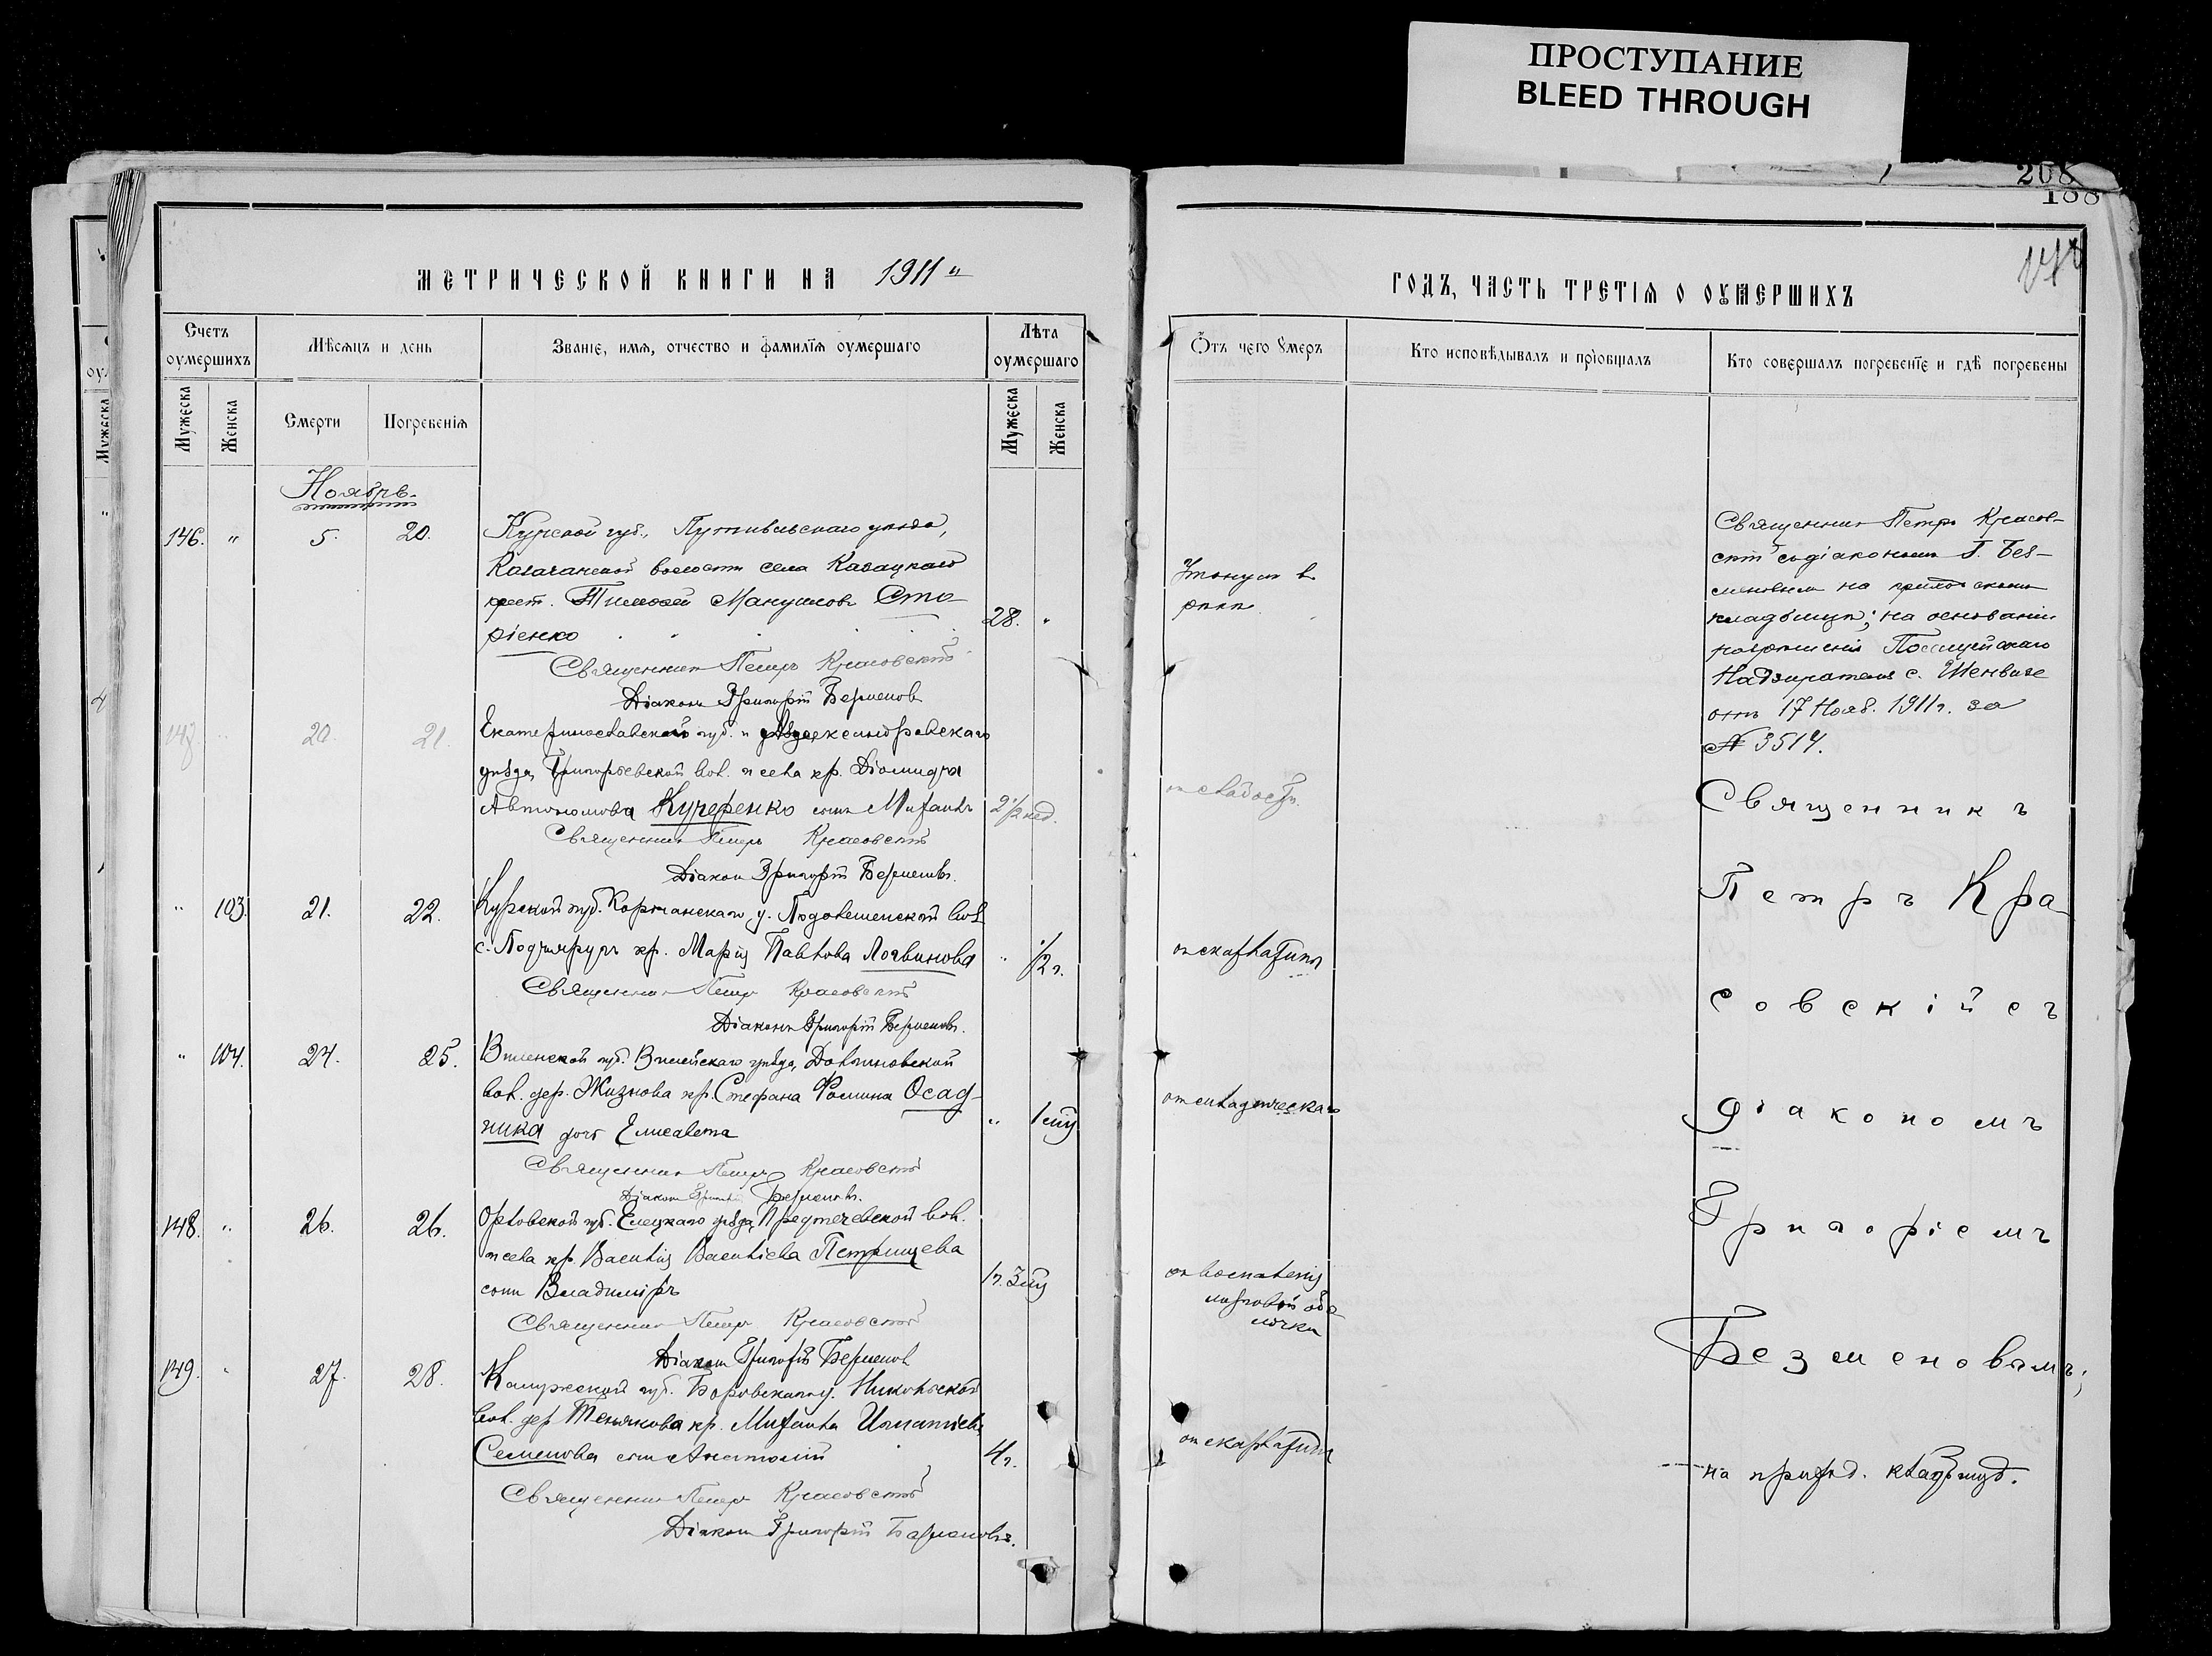 ПРОСТУПАНИЕ
BLEED THROUGH
208
188
МЕТРИЧЕСКОЙ КНИГИ НА 1911 "
ГОДЪ, ЧАСТЬ ТРЕТІЯ О ОУМЕРШИХЪ
Счетъ оумершихъ
Мѣсяцъ и день
Званіе, имя, отчество и фамилїя оумершаго
Лѣта оумершаго
Отъ чего умеръ
Кто исповѣдывалъ и прїобщалъ
Кто совершалъ погребенїе и гдѣ погребены
Мужеска
Женска
Смерти
Погребенїя
Мужеска
Женска
Ноябрь.
146. " 5. 20. Курской губ., Путивльскаго уѣзда,
волости села Казацкаго
крест. Тимофей Мануиловъ Сто-
рїенко 28. "
Утонулъ въ
рѣкѣ
Священникъ Петръ Красовскій
Діаконъ Григорій Безменовъ
Священникъ Петръ Красов-
скій съ діакономъ Г. Без-
меновымъ на приходскомъ
кладбищѣ; на основаніи
разрѣшенія Полицейскаго
Надзирателя с.
отъ 17 Нояб. 1911 г. за
№ 3514.
147 " 20. 21. Екатеринославской губ. и Александровскаго
уѣзда, Григорьевской вол. и села кр. Діомида
Автономова Кучеренко сынъ Михаилъ 2 1/2 нед.
отъ слабости.
Священникъ Петръ Красовскій
Діаконъ Григорій Безменовъ.
" 103. 21. 22. Курской губ. Корочанскаго у. вол.
с. кр. Марія Павлова Логвинова " 1/2 г.
отъ скарлатины
Священникъ Петръ Красовскій
Діаконъ Григорій Безменовъ.
" 104. 24. 25. Виленской губ. Вилейскаго уѣзда, Долгиновской
вол. дер. Жизнова кр. Стефана Фомина Осад-
ника дочь Елисавета " 1 мѣс
Священникъ Петръ Красовскій
Діаконъ Григорій Безменовъ.
148. " 26. 26. Орловской губ. Елецкаго уѣзда, Предтечевской вол.
и села кр. Василія Васильева Петрищева
сынъ Владиміръ 1 г. 3 мѣс
отъ воспаленія
мозговой обо-
лочки
Священникъ Петръ Красовскій
Діаконъ Григорій Безменовъ
149. " 27. 28. Калужской губ. Боровскаго у. Никольской
вол. дер. кр. Михаила Игнатіева
Семенова сынъ Анатолій 4 г.
отъ скарлатины
Священникъ Петръ Красовскій
Діаконъ Григорій Безменовъ.
Священникъ
Петръ Кра-
совскій съ
діакономъ
Григоріемъ
Безменовымъ;
на приход. кладбищѣ.